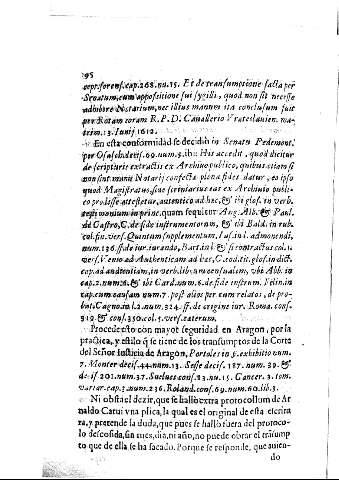 96
rept. forens. cap. 268. nu. 15. Et de transumptione facta per
Senatum, cum appositione sui sygilli, quod non sit necesse
adhibere Notarium, nec illius manum ita conclusum fuit
per Rotam coram R. P. D. Cavallerio Vratislavien. ma
trim. 13. Junij 1612.
En esta conformidad se decidiò in Senatu Pedemont.
per Osasch. decis. 69. num. 5. ibi: His accedit, quod dicitur
de scripturis extractis ex Archivo publico, quibus etiam si
non sint manu Notarij confecta plena fides datur, eo ipso
quod Magistratus, sive scriniarius eas ex Archivo publi-
co prodisse attestetur, autentico ad hæc, & ibi glos. in verb.
testimonium in princ. quam sequitur Ang. Alb. & Paul.
de Castro, C. de fide instrumentorum, & ibi Bald. in rub.
col. fin. vers. Quintum supplementum, Jas. in l. admonendi,
num. 136. ff. de iur. iurando, Bart. in l. si contractus col. 1.
vers. Venio ad Authenticam ad hæc, C. eod. tit. glos. in dict.
cap. ad audentiam, in verb. librum censualem, vbi Abb. in
cap. 2. num. 6. & ibi Card. num. 6. de fide instrum. Felin. in
cap. cum causam num. 7. post alios per eum relatos, de pro-
bat. Cagno. in l. 2. num. 324. ff. de origine iur. Roma. cons.
319. & cons. 350. col. 5. vers. cæterum.
Procede esto con mayor seguridad en Aragon, por la
practica, y estilo q̃ se tiene de los transumptos de la Corte
del Señor Iusticia de Aragon, Portoles in §. exhibitio num.
7. Monter decis. 44. num. 13. Sesse decis. 187. num. 39. &
decis. 201. num. 37. Suelves cons. 13. nu. 15. Cancer. 3. tom.
variar. cap. 3. num. 236. Roland. cons. 69. num. 60. lib. 3.
Ni obsta el dezir, que se hallò extra protocollum de Ar
naldo Catui vna plica, la qual es el original de esta escritu
ra, y pretende la duda, que pues se hallò fuera del protoco-
lo descosida, sin mes, dia, ni año, no puede obrar el trãsump
to que de ella se ha sacado. Porque se responde, que auien-
do